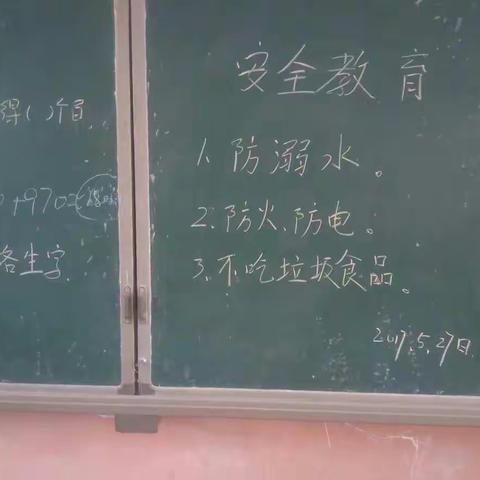 得( )个百
+970=
各生字
安全教育
1、防溺水。
2、防火、防电。
3、不吃垃圾食品。
2017.5.27日